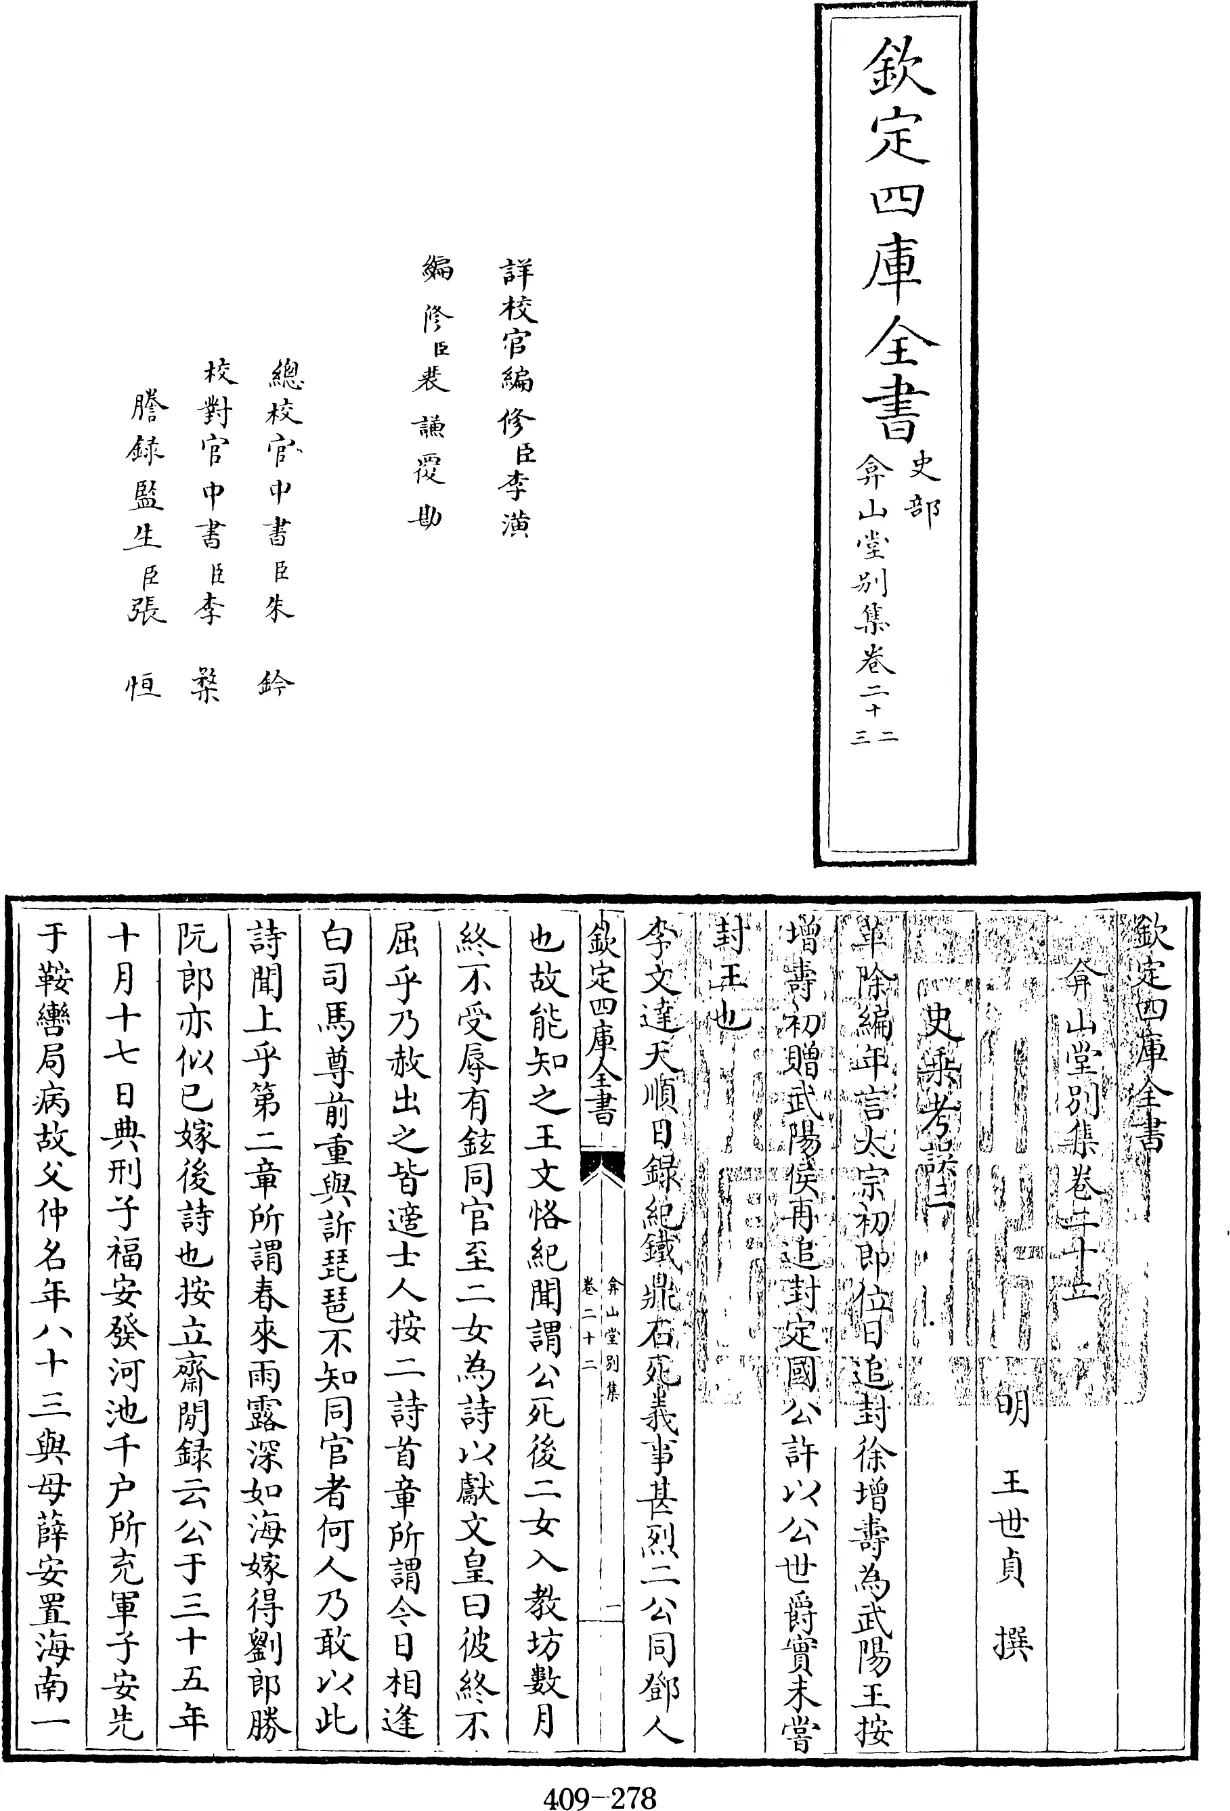 欽定四庫全書
史部
弇山堂別集卷二十二三
詳校官編修臣李潢
編修臣裴謙覆勘
總校官中書臣朱鈐
校對官中書臣李榘
謄錄監生臣張恒
欽定四庫全書
弇山堂別集卷二十二
明 王世貞 撰
史乘考誤三
革除編年言太宗初即位日追封徐增壽為武陽王按
增壽初贈武陽侯再追封定國公許以公世爵實未嘗
封王也
李文達天順日録紀鐵鼎石死義事甚烈二公同鄧人
欽定四庫全書
弇山堂別集
卷二十二
一
也故能知之王文恪紀聞謂公死後二女入教坊數月
終不受辱有鉉同官至二女為詩以獻文皇曰彼終不
屈乎乃赦出之皆適士人按二詩首章所謂今日相逢
白司馬尊前重與訴琵琶不知同官者何人乃敢以此
詩聞上乎第二章所謂春來雨露深如海嫁得劉郎勝
阮郎亦似已嫁後詩也按立齋閒録云公于三十五年
十月十七日典刑子福安發河池千户所充軍子安先
于鞍轡局病故父仲名年八十三與母薛安置海南一
409-278